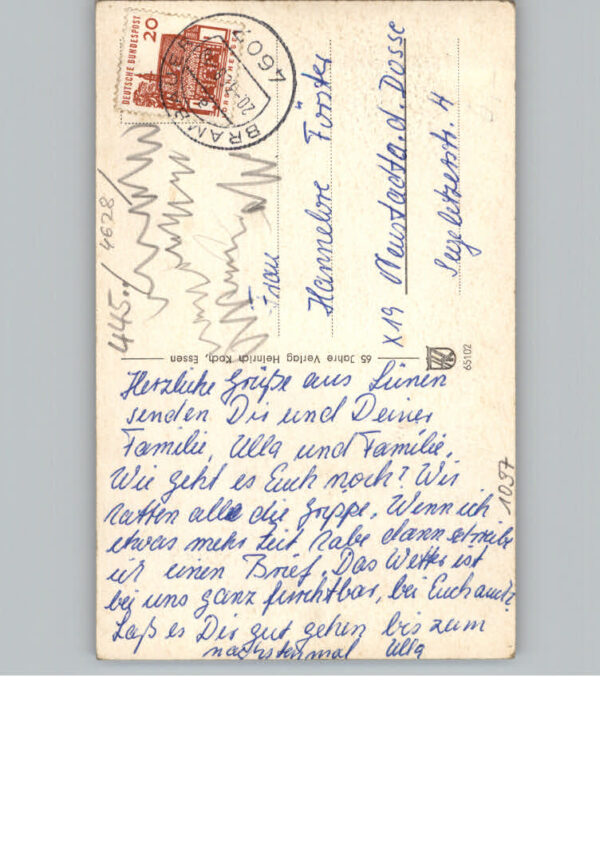 Herzliche Grüße aus Lünen
senden Dir und Deiner
Familie, Ulla und Familie.
Wie geht es Euch noch? Wir
hatten alle die Grippe. Wenn ich
etwas mehr Zeit habe dann schreibe
ich einen Brief. Das Wetter ist
bei uns ganz furchtbar, bei Euch auch?
Laß es Dir gut gehen bis zum
nächstenmal Ulla
65 Jahre Verlag Heinrich Koch, Essen
65102
1097
445../4628/
Frau
Hannelore Förster
X19 Neustadt a. d. Dosse
4
DEUTSCHE BUNDESPOST
20
4601 BRAMBAUER